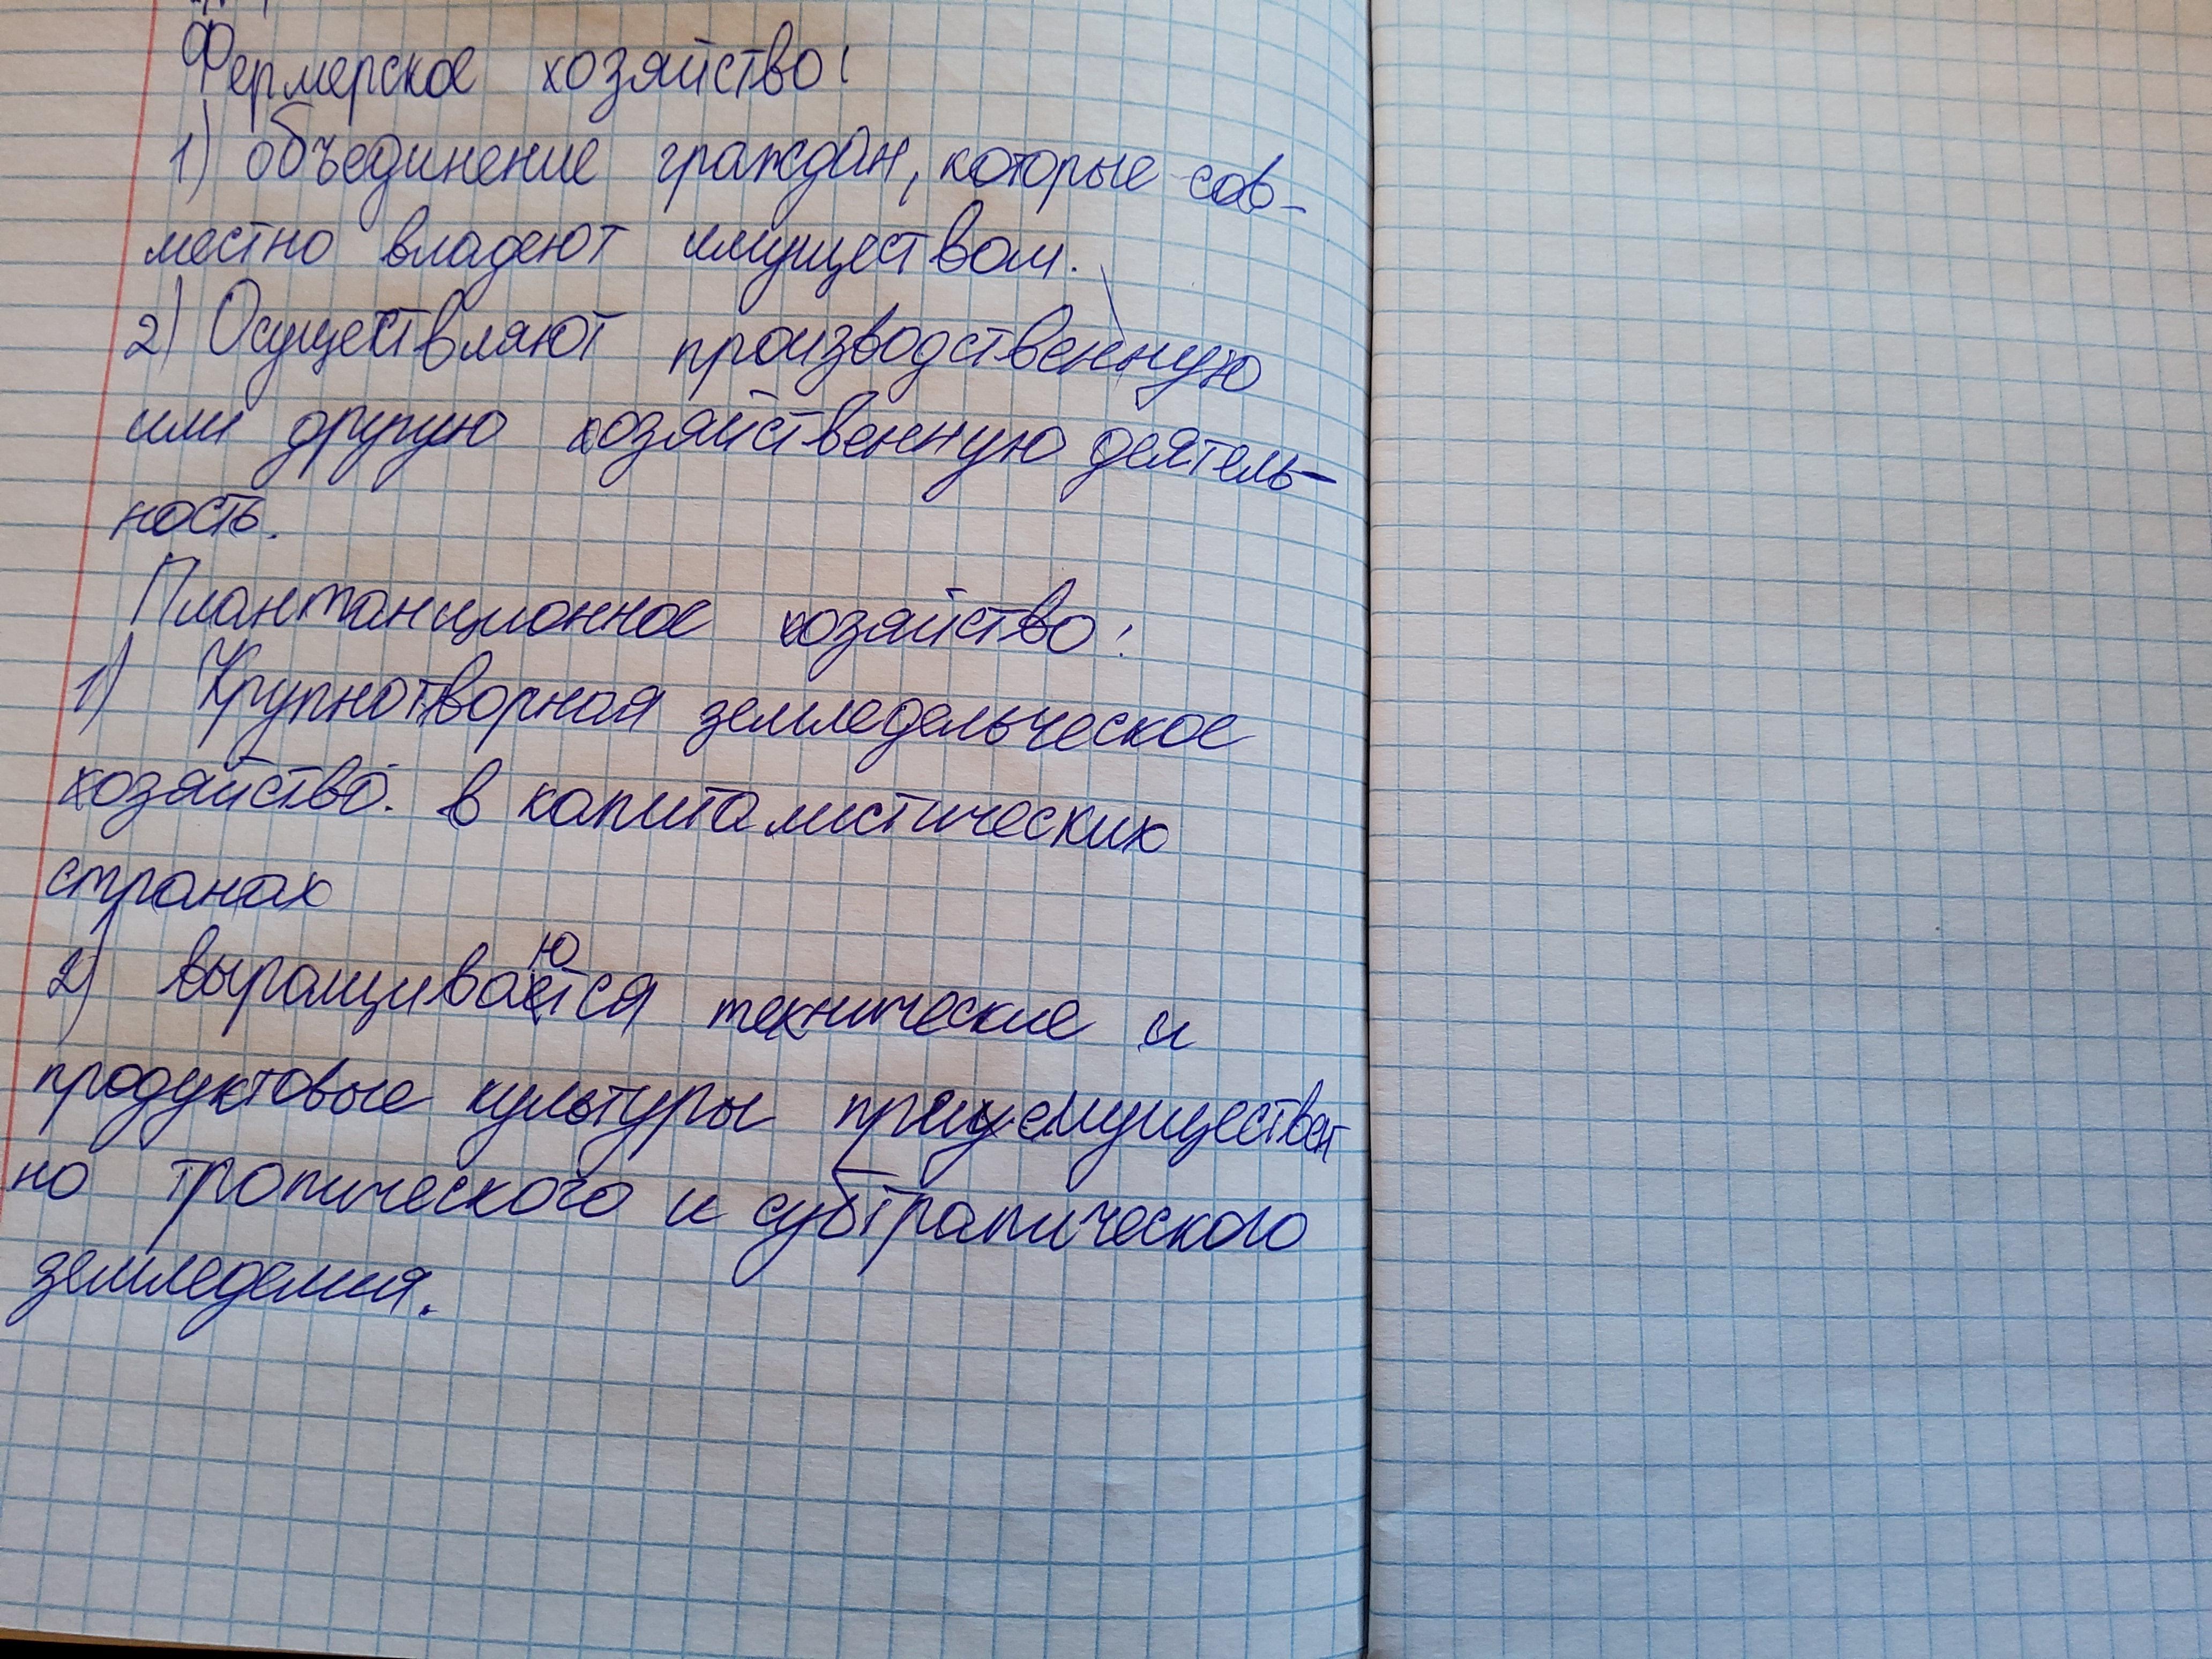 Фермерское хозяйство:
1) объединение граждан, которые сов-
местно владеют имуществом.
2) Осуществляют производственную
или другую хозяйственную деятель-
ность.
Плантанционное хозяйство:
1) Крупнотворная земледельческое
хозяйство. в капиталистических
странах
2) выращиваются технические и
продуктовые культуры преимуществен
но тропического и субтрапического
земледелия.